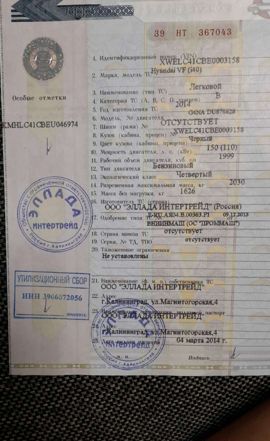 39 НТ 367043
1. Идентификационный номер (VIN) XWELC41CBE0003158
2. Марка, модель ТС Hyundai VF (i40)
3. Наименование (тип ТС) Легковой
4. Категория ТС (А, В, С, D, прицеп) В
5. Год изготовления ТС 2014
6. Модель, № двигателя
7. Шасси (рама) № ОТСУТСТВУЕТ
8. Кузов (кабина, прицеп) № XWELC41CBE0003158
9. Цвет кузова (кабины, прицепа) Черный
10. Мощность двигателя, л. с. (кВт) 150 (110)
11. Рабочий объем двигателя, куб. см 1999
12. Тип двигателя Бензиновый
13. Экологический класс Четвертый
14. Разрешенная максимальная масса, кг 2030
15. Масса без нагрузки, кг 1626
16. Изготовитель ТС (страна)
ООО "ЭЛЛАДА ИНТЕРТРЕЙД" (Россия)
17. Одобрение типа ТС №
09.12.2013
18. Страна вывоза ТС отсутствует
19. Серия, № ТД, ТПО отсутствует
20. Таможенные ограничения
Не установлены
21. Наименование (ф. и. о.) собственника ТС
ООО "ЭЛЛАДА ИНТЕРТРЕЙД"
22. Адрес
г.Калининград, ул.Магнитогорская,4
ООО "ЭЛЛАДА ИНТЕРТРЕЙД"
г.Калининград, ул.Магнитогорская,4
04 марта 2014 г.
М. П.
Подпись
Особые отметки
KMHLC41CBEU046974
ЭЛЛАДА
ИНТЕРТРЕЙД
УТИЛИЗАЦИОННЫЙ СБОР
ИНН 3906072056
ЭЛЛАДА
интертрейд